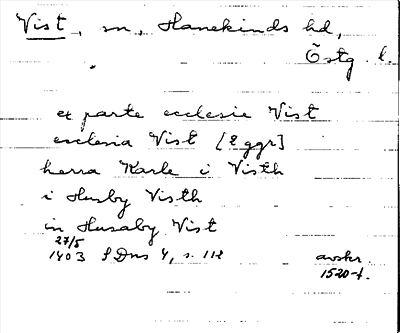 Vist, sn, Hanekinds hd,
Östg. l.
ex parte ecclesie Vist
ecclesia Vist [2 ggr]
herra Karle i Visth
i Husby Visth
in Husaby Vist
27/5
1403 SDns 4, s. 112 avskr.
1520-t.